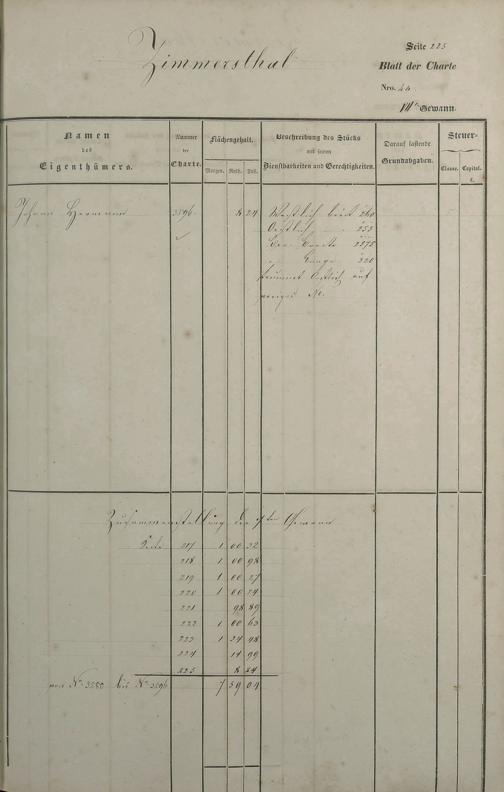 Zimmersthal
Seite 225
Blatt der Charte
Nro. 44
VII te Gewann.
Namen
des
Eigenthümers.
Nummer
der
Charte.
Flächengehalt.
Morgen. Ruth. Fuß.
Beschreibung des Stücks
mit seinen
Dienstbarkeiten und Gerechtigkeiten.
Darauf lastende
Grundabgaben.
Steuer-
Classe. Capital.
Johann Hermann 3896. 8 24 Westlich breit 260
Oestlich 255
Breite 2575
Länge 320
kommt Oestlich auf
voriges No.
Zusammenstellung der 7ten Gewann
Seite 217 1 00 32
218 1 00 98
219 1 00 27
220 1 00 24
221 98 89
222 1 00 63
223 1 34 98
224 14 99
225 8 24
von No 3880 bis No 3896 7 59 04